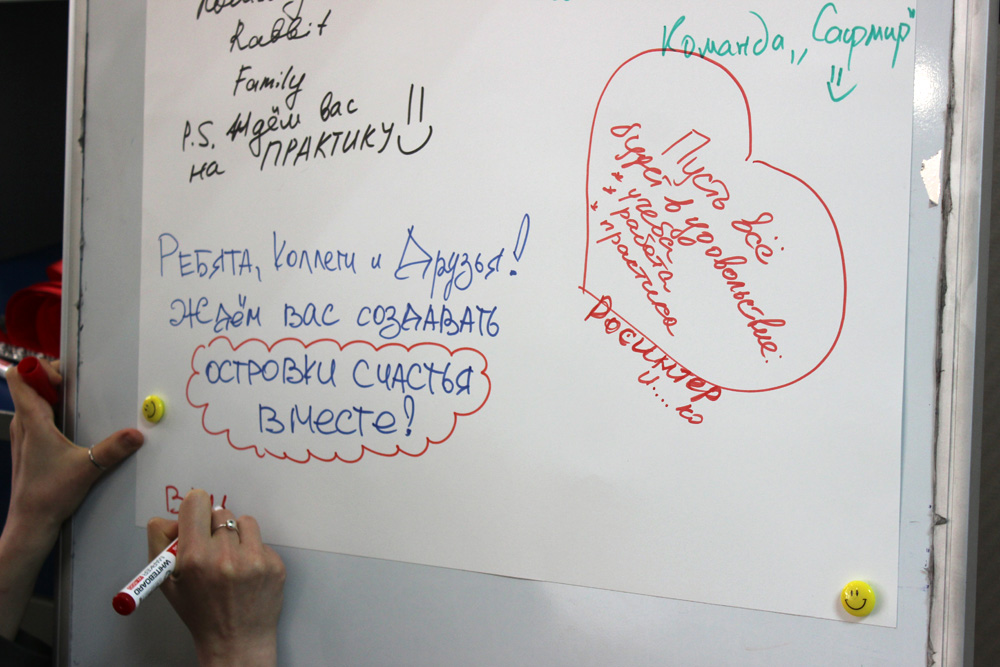 Rabbit
Family
P.S. Ждём вас
на ПРАКТИКУ
Команда „Сапфир"
Пусть всё
будет в удовольствие:
* учёба
* работа
* практика
РОСИНТЕР
и.... ко
РЕБЯТА, Коллеги и Друзья!
ЖДЁМ ВАС СОЗДАВАТЬ
ОСТРОВКИ СЧАСТЬЯ
ВМЕСТЕ!
WHITEBOARD